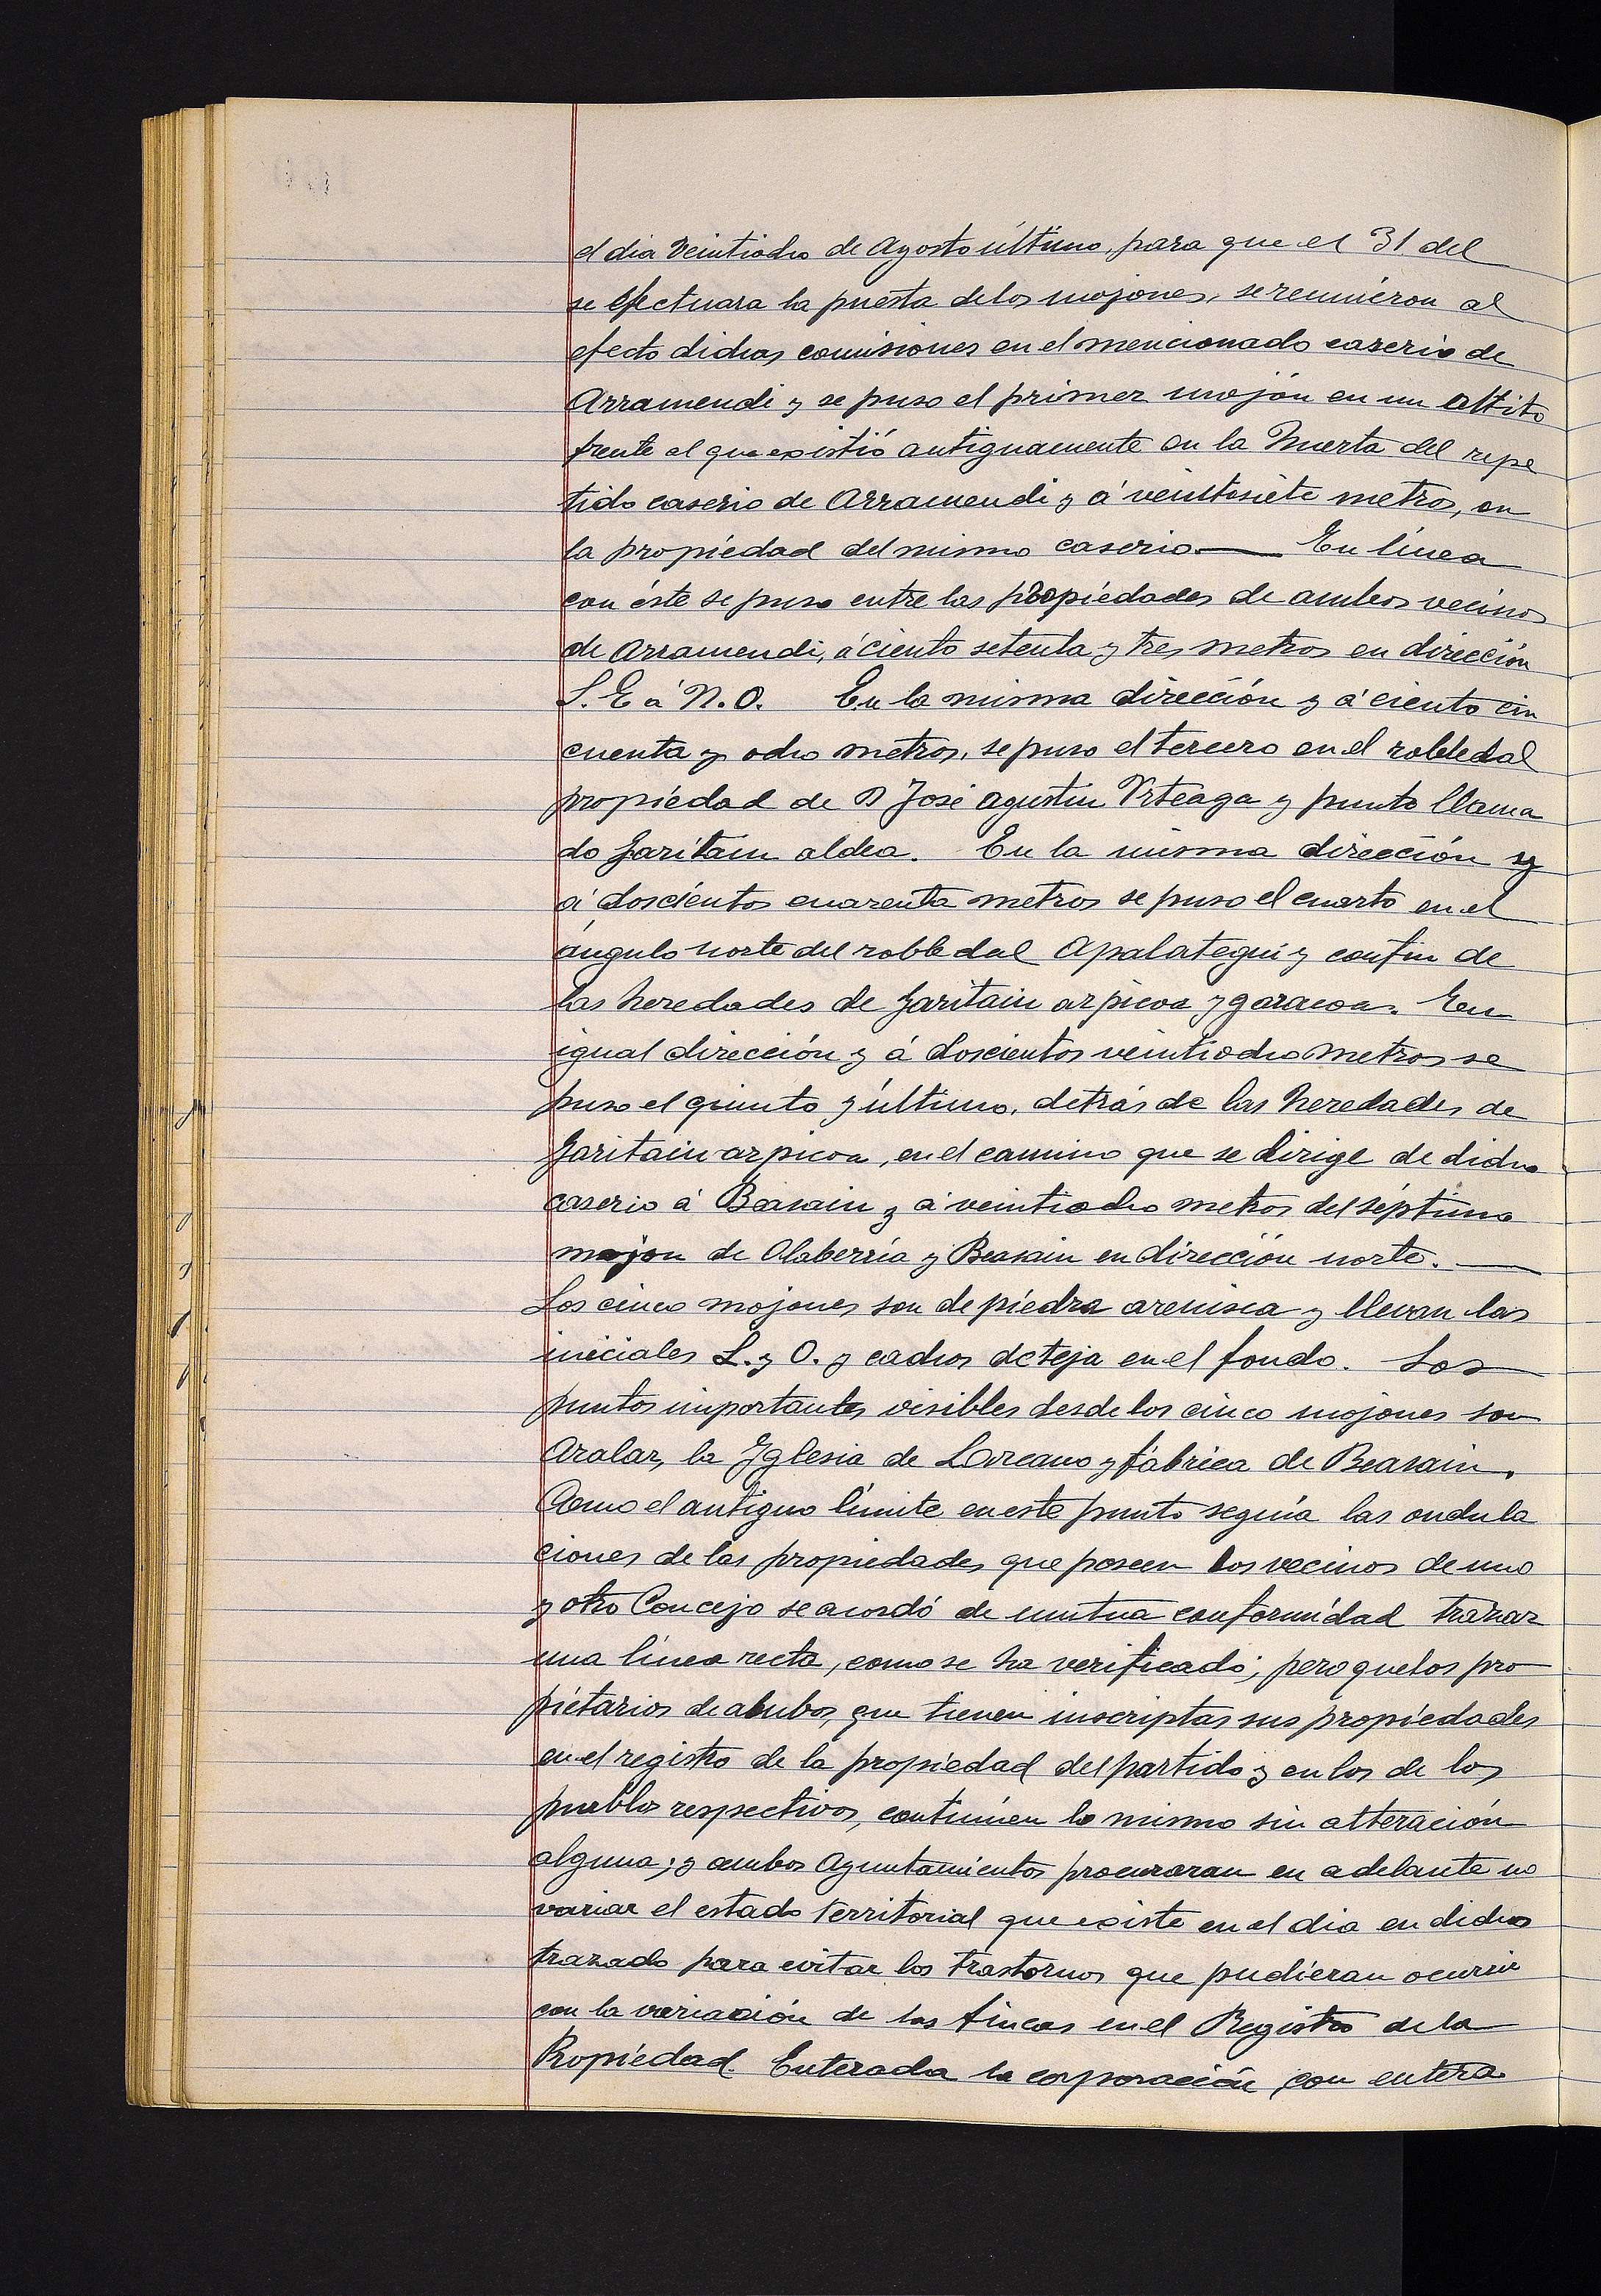 el dia veintiocho de Agosto último, para que el 31 del
se efectuara la puesta de los mojones, se reunieron al
efecto dichas comisiones en el mencionado caserio de
Arramendi y se puso el primer mojón en un altito
frente al que existió antiguamente en la huerta del repe
tido caserio de Arramendi y á veintisiete metros, en
la propiedad del mismo caserio — En línea
con éste se puso entre las propiedades de ambos vecinos
de Arramendi, á ciento setenta y tres metros en dirección
S.E á N.O. En la misma dirección y á ciento cin
cuenta y ocho metros, se puso el tercero en el robledal
propiedad de D José Agustin Urteaga y punto llama
do Garitain aldea. En la misma dirección y
á doscientos cuarenta metros se puso el cuarto en el
ángulo norte del robledal Apalategui y confin de
las heredades de Garitain arpicoa y garacoa. En
igual dirección y á doscientos veintiocho metros se
puso el quinto y último, detrás de las heredades de
Garitain arpicoa, en el camino que se dirige de dicho
caserio á Beasain y á veintiocho metros del séptimo
mojon de Olaberria y Beasain en dirección norte. —
Los cinco mojones son de piedra arenisca y llevan las
iniciales L. y O. y cachos de teja en el fondo. Los
puntos importantes visibles desde los cinco mojones son
Aralar, la Iglesia de Lazcano y fábrica de Beasain.
Como el antiguo límite en este punto seguía las ondula
ciones de las propiedades que poseen los vecinos de uno
y otro Concejo se acordó de mutua conformidad trazar
una línea recta, como se ha verificado; pero que los pro
pietarios de ambos, que tienen inscriptas sus propiedades
en el registro de la propiedad del partido y en los de los
pueblos respectivos, continúen lo mismo sin alteración
alguna; y ambos Ayuntamientos procuraran en adelante no
variar el estado territorial que existe en el dia en dicho
trazado para evitar los trastornos que pudieran ocurrir
con la variación de las fincas en el Registro de la
Propiedad. Enterada la corporación, con entera